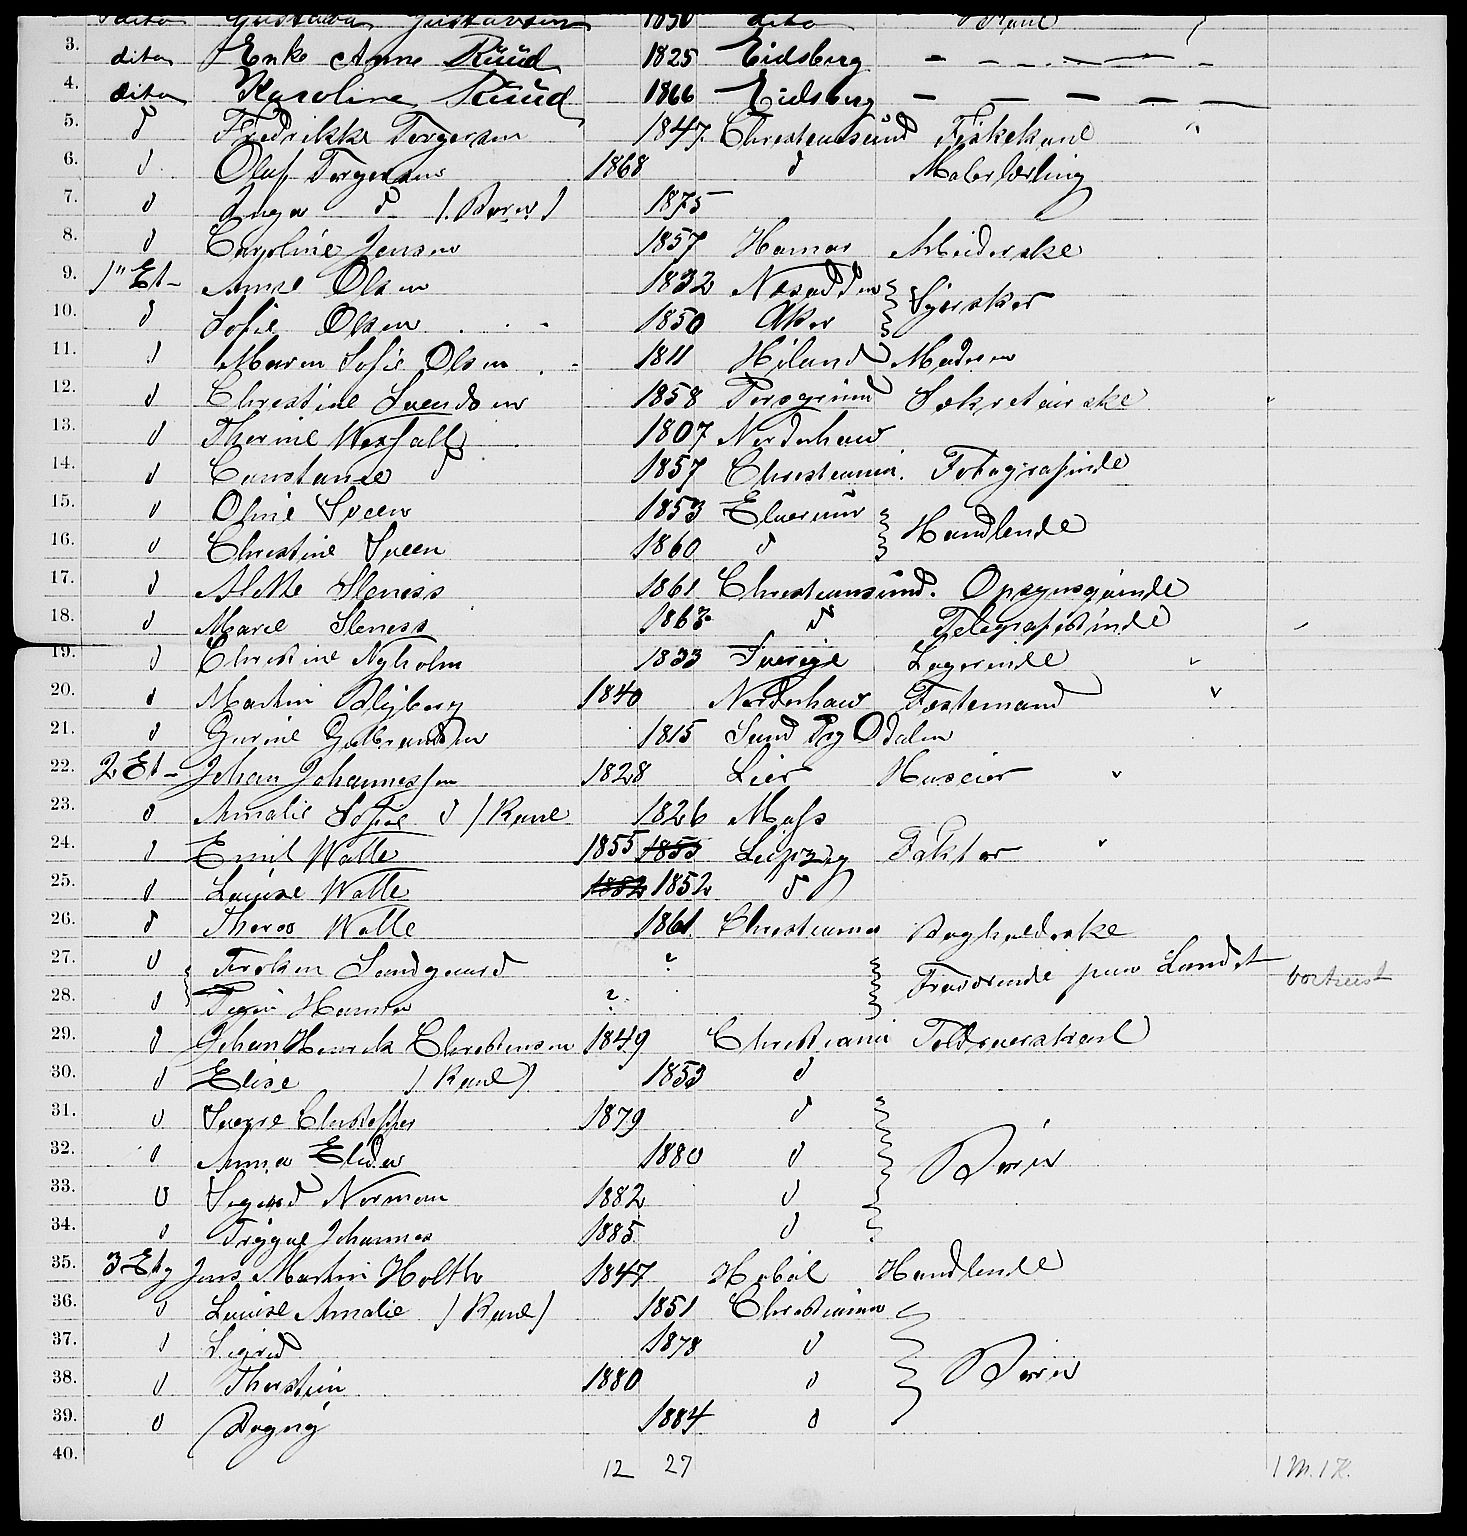 dito Gustava Gustavsen 1850 dito
3. dito Enke Anne Ruud 1825 Eidsberg — — — — — —
4. dito Karoline Ruud 1866 Eidsberg — — — — —
5. d Fredrikke Torgersen 1847 Christiansund Fiskekone "
6. d Oluf Torgersen 1868 d Malerlærling
7. d Inga d (Barn) 1875
8. d Caroline Jensen 1857 Hamar Arbeiderske
9. 1" Et- Anne Olsen 1832 Nesodden Syersker
10. d Sofie Olsen 1850 Aker
11. d Maren Sofie Olsen 1811 Høland Moderen
12. d Christine Svendsen 1858 Porsgrund
13. d Thorine 1807 Norderhaw
14. d Constance d 1857 Christiania. Fotografinde
15. d Oline Sveen 1853 Elverum Handlende
16. d Christine Sveen 1860 d
17. d Sleniss 1861 Christiansund.
18. d Marie Sleness 1863 d Telegrafistinde
19. d Christine Nyholm 1833 Sverige Logerinde
20. d Martin 1840 Norderhaw
21. d Gurine Gulbrandsen 1815 Sand Prg Odalen
22. 2 Et- Johan Johannessen 1828 Lier Huseier
23. d Amalie Sofie d (Kone 1826 Moss
24. d Emil Walle 1855 1855 Leipzig Faktor
25. d Louise Walle 1852 1852 d
26. d Walle 1861 Christiania Bogholderske
27. d Frøken Sandgaard ? Fraværende paa Landet bortreist
28. d Hansen ?
29. d Johan Henrik Christensen 1849 Christiania
30. d Elise (Kone) 1853 d
31. d Sverre Christoffer 1879 d
32. d Anna 1880 d Børn
33. d Sigurd Norman 1882 d
34. d Trygve Johannes 1885 d
35. 3 Etg Jens Martin Holth 1847 Hobøl Handlende
36. d Louise Amalie (Kone) 1851 Christiania
37. d Sigrid 1878 d Børn
38. d Thorstein 1880 d
39. d Dagny 1884 d
40.
12 27 1 M. 1 K.